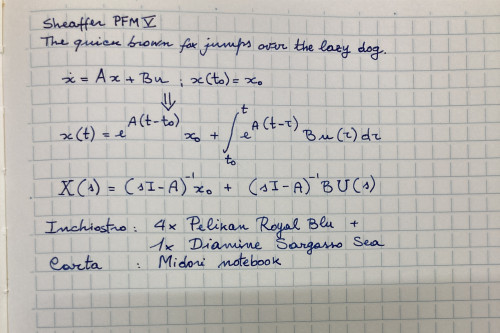 Sheaffer PFM V
The quick brown fox jumps over the lazy dog.
ẋ = Ax + Bu ; x(t₀) = x₀
⇓
x(t) = e^{A(t-t₀)} x₀ + ∫_{t₀}^{t} e^{A(t-τ)} B u(τ) dτ
X(s) = (sI-A)⁻¹ x₀ + (sI-A)⁻¹ B U(s)
Inchiostro : 4x Pelikan Royal Blu +
1x Diamine Sargasso Sea
Carta : Midori notebook